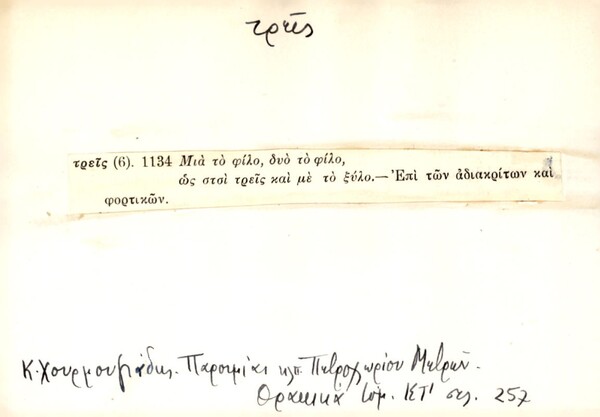 τρεῖς
τρεῖς (6). 1134 Μιὰ τὸ φίλο, δυὸ τὸ φίλο,
ὡς στσὶ τρεῖς καὶ μὲ τὸ ξύλο.—Ἐπὶ τῶν ἀδιακρίτων καὶ
φορτικῶν.
Κ. Χουρμουζιάδης. Παροιμίαι κλπ. Πετροχωρίου Μετρῶν.
Θρακικά τομ. ΚΣΤ' σελ. 257